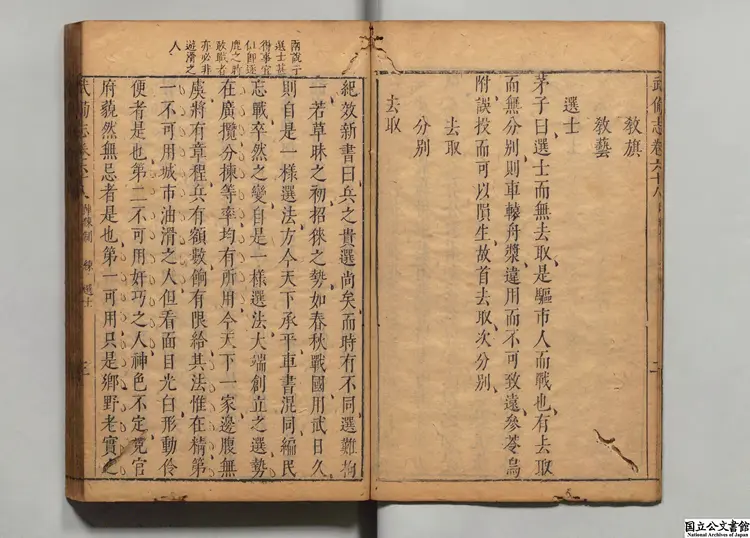 武備志卷六十八
二
教旗
教藝
選士
茅子曰選士而無去取是驅市人而戰也有去取
而無分別則車轅舟漿違用而不可致遠參苓烏
附誤投而可以隕生故首去取次分別
去取
分別
去取
選士甚
得事宜
逐
鹿之將
敢戰者
亦必非
遊滑之
人
紀效新書曰兵之貴選尚矣而時有不同選難拘
一若草昧之初招徠之勢如春秋戰國用武日久
則自是一樣選法方今天下承平車書混同編民
忘戰卒然之變自是一樣選法大端創立之選勢
在廣攬分揀等率均有所用今天下一家邊腹無
虞將有章程兵有額數餉有限給其法惟在精第
一不可用城市油滑之人但看面目光白形動伶
便者是也第二不可用奸巧之人神色不定見官
府藐然無忌者是也第一可用只是鄉野老實之
武備志卷六十八 陣練制 練 選士 三
国立公文書館
National Archives of Japan